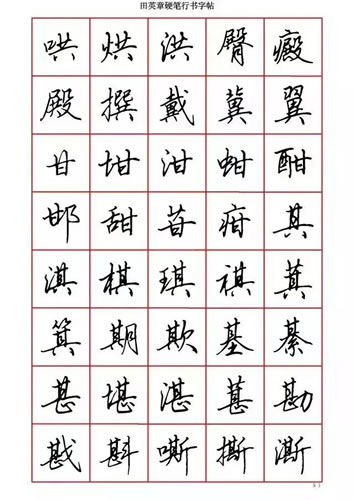 田英章硬笔行书字帖
哄烘洪臀癜
殿撰戴冀翼
甘坩泔蚶酣
邯甜苷疳其
淇棋琪祺萁
箕期欺基綦
甚堪湛葚勘
戡斟嘶撕澌